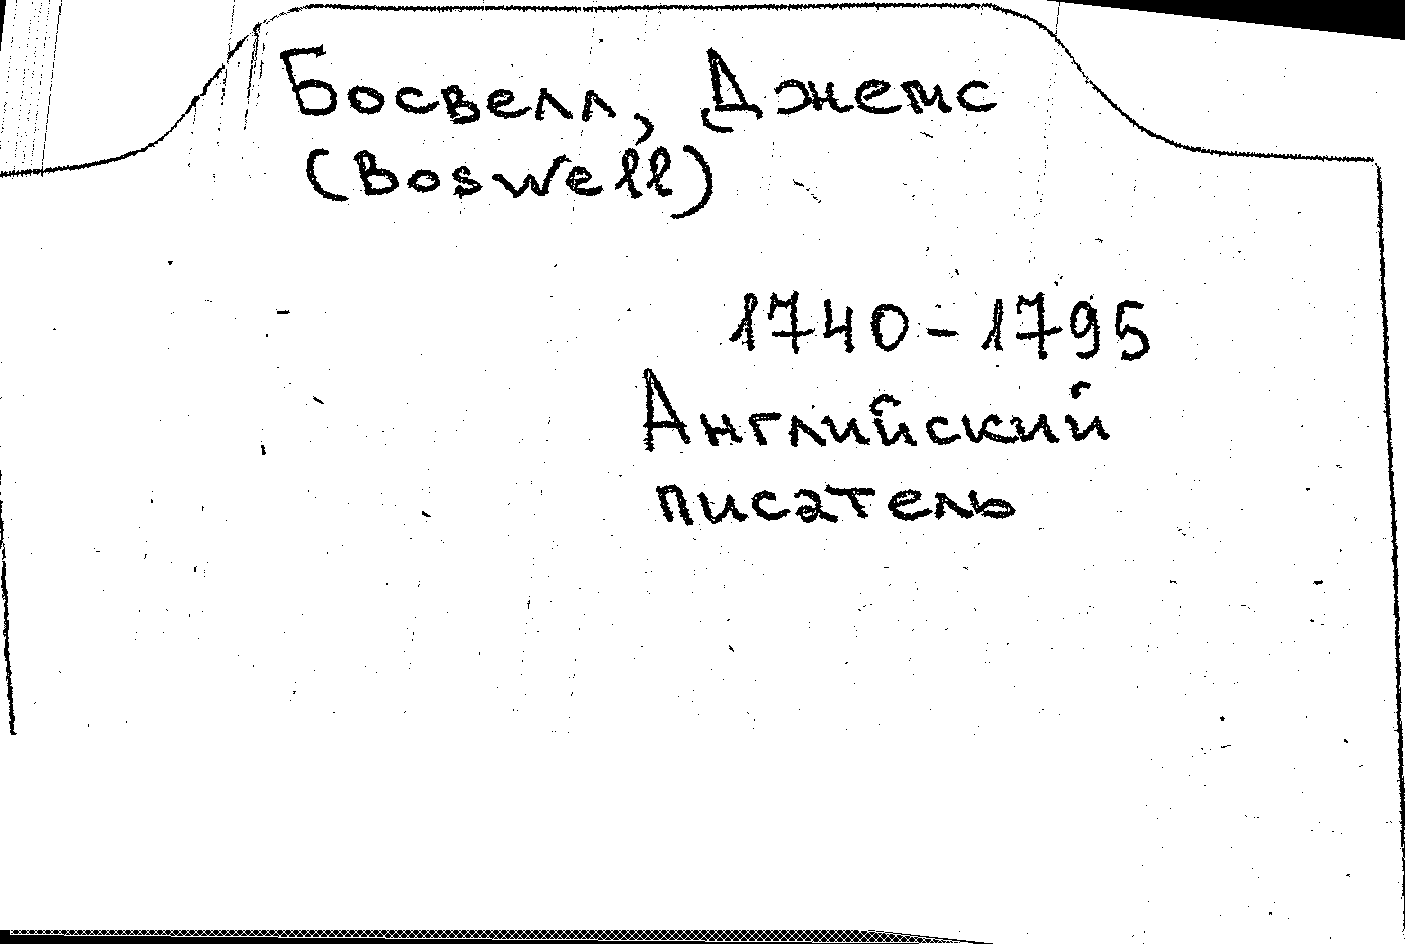 Босвелл, Джемс
(Boswell)
1740-1795
Английский
писатель